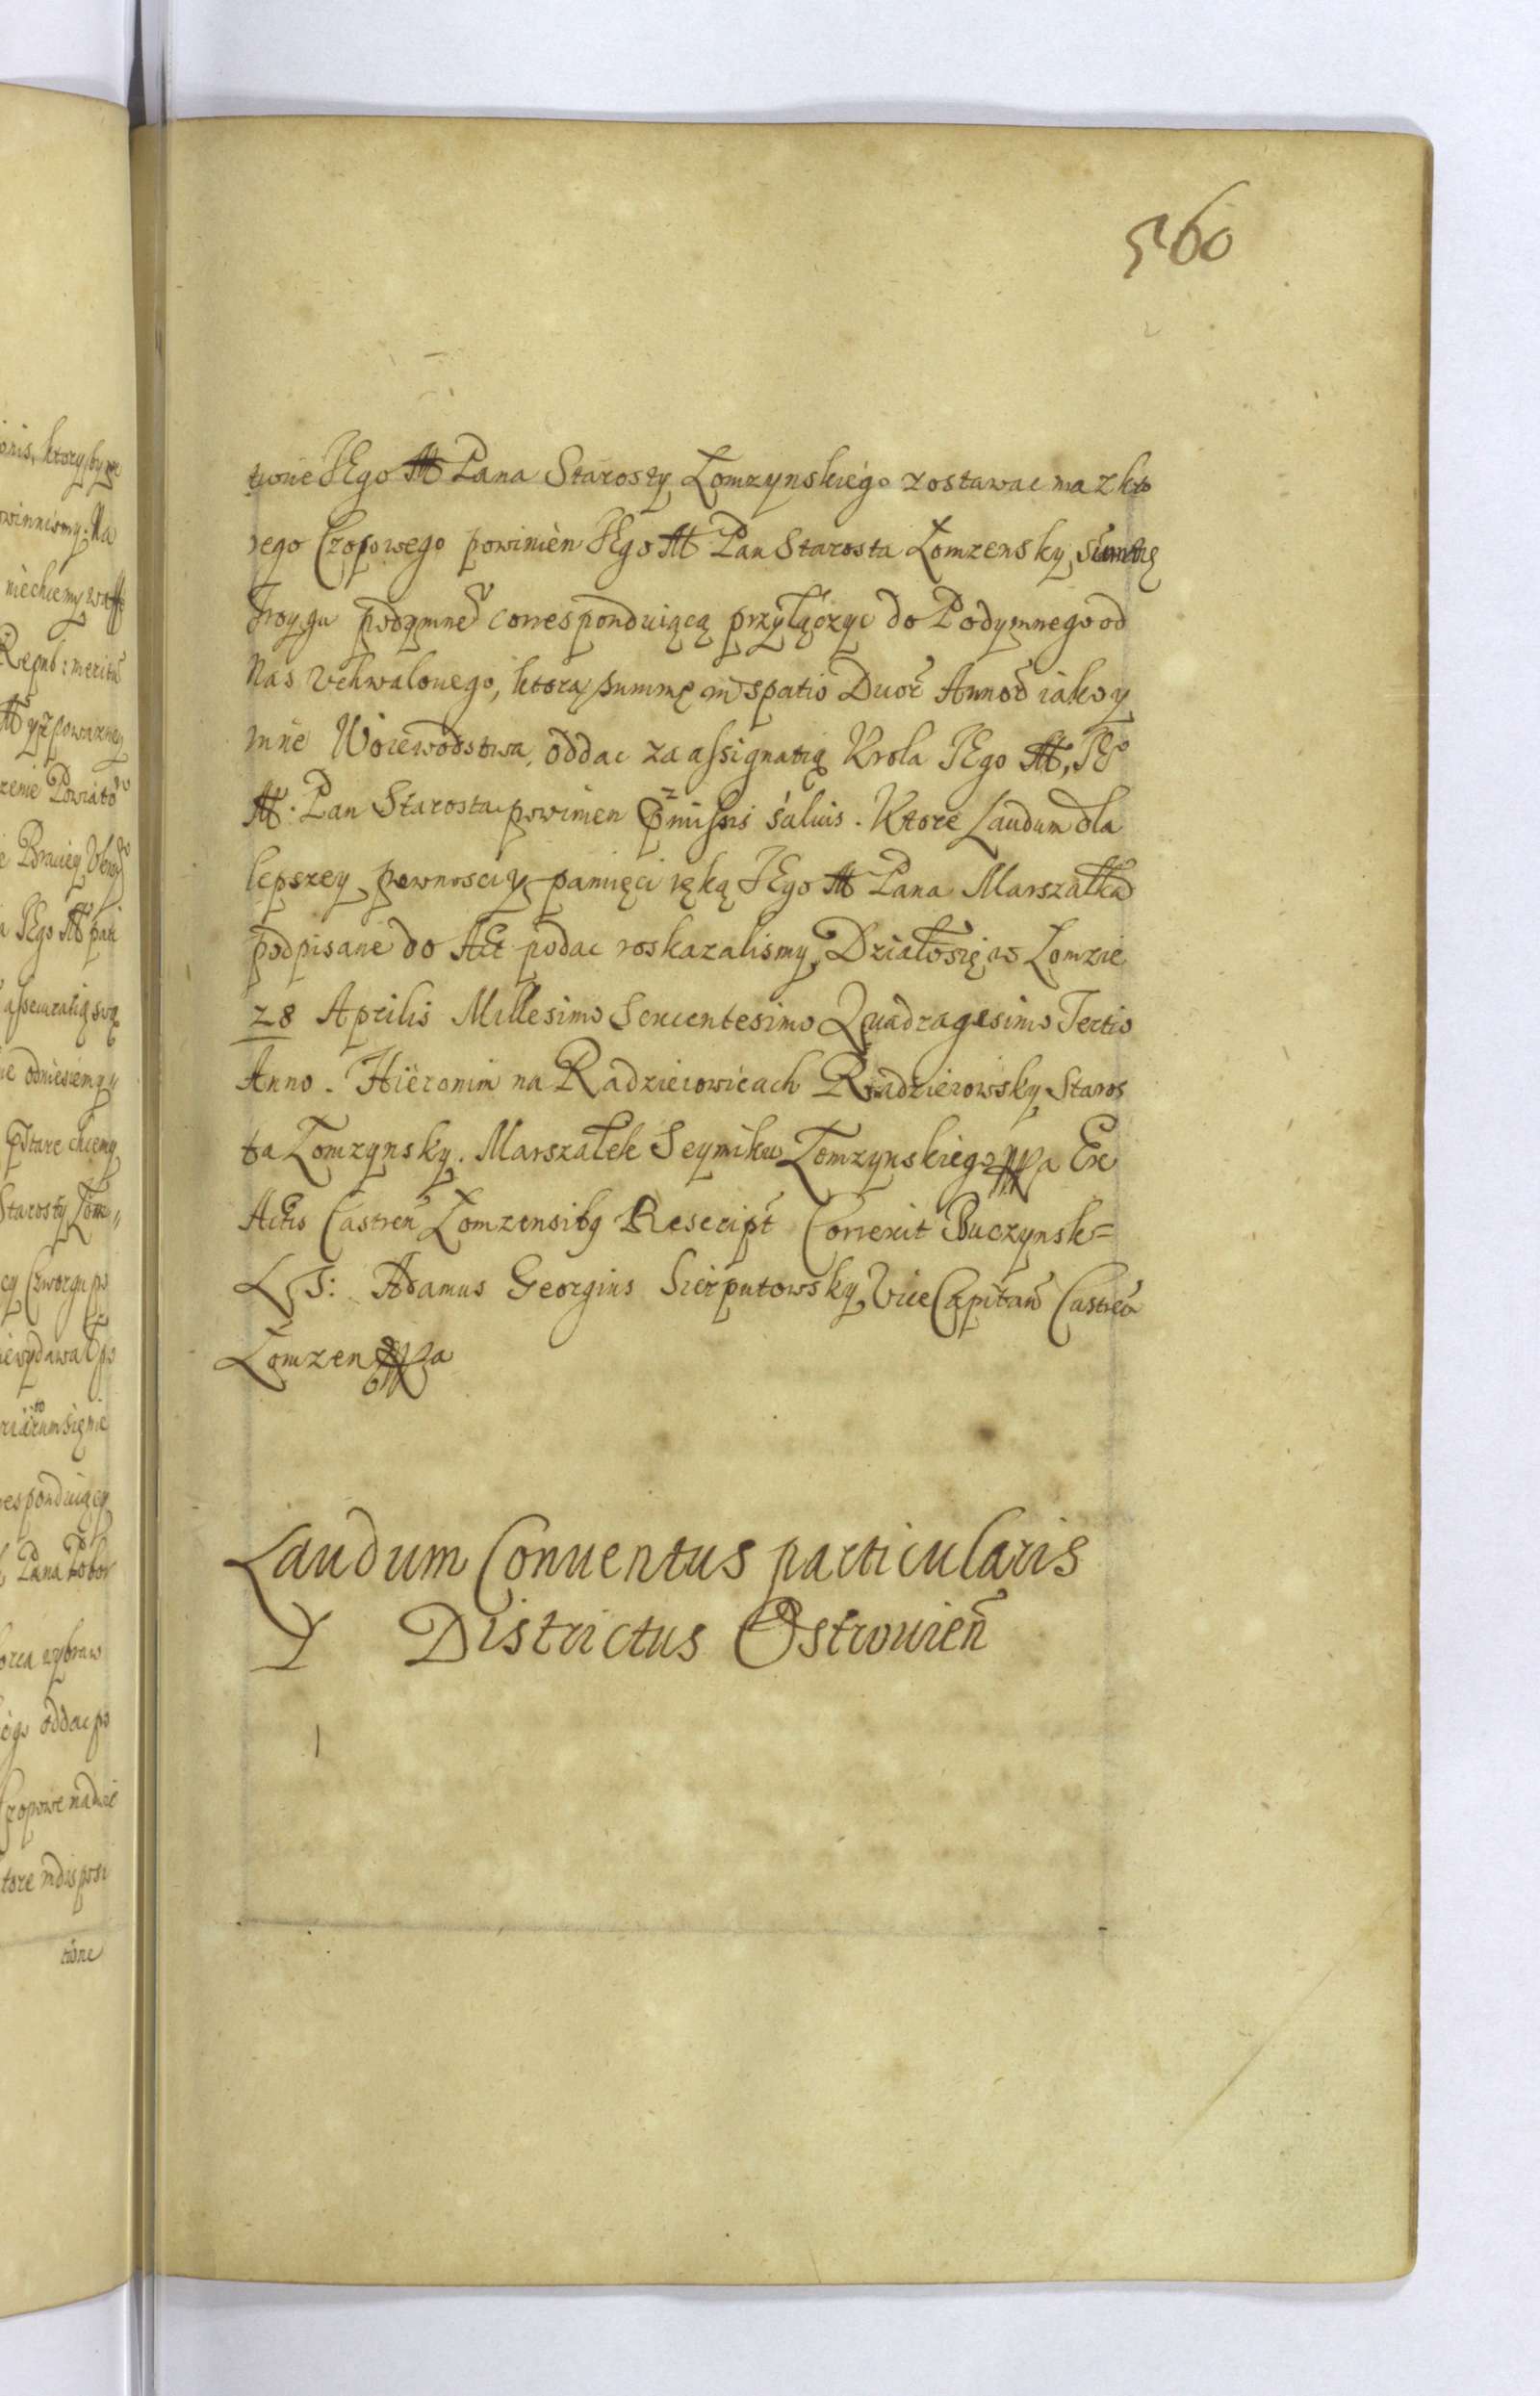 560
tione JEgo M Pana Starosty Łomzynskiego zostawac ma z kto
rego Czopowego powinien JEgo M Pan Starosta Łomzensky summę
Troygu podymne͂ correspoduiącą przyłączyc do Podymnego od
Nas vchwalonego, ktorą summę in spatio Duor͂ Annor͂ iako y
inne Woiewodstwa, oddac za assignatią Krola JEgo M, JEo
M. Pan Starosta powinien p͂missis saluis. Ktore Laudum dla
lepszey pewnosci y pamięci ręką JEgo M Pana Marszałka
podpisane do Act podac roskazalismy, Działo się w Łomzie
28 Aprilis Millesimo Sexcentesimo Quadragesimo Tertio
Anno. Hieronim na Radzieiowicach Radzieiowsky Staros
ta Łomzynsky. Marszałek Seymiku Łomzynskiego mpa Ex
Actis Castren͂ Łomzensibq Rescript͂ Correxit Buczynsk=
LS: Adamus Georgius Sierputowsky Vice Capitan͂ Castren͂
Łomzen mpa
Laudum Conuentus particularis
Districtus Ostrouien͂
onis, ktory by
winnismy. Na
niechcemy
Repub: merit
Powiato
JEgo M
assecuratię swę
odniesiemy y
stare chcemy
Starosty Łom„
cy Czworgu po
wydawał po
rum się nie
respoduiącey
Pana Pobor
orca wybraw
ego oddac po
Czopowe na dwie
tore in disposi
tione